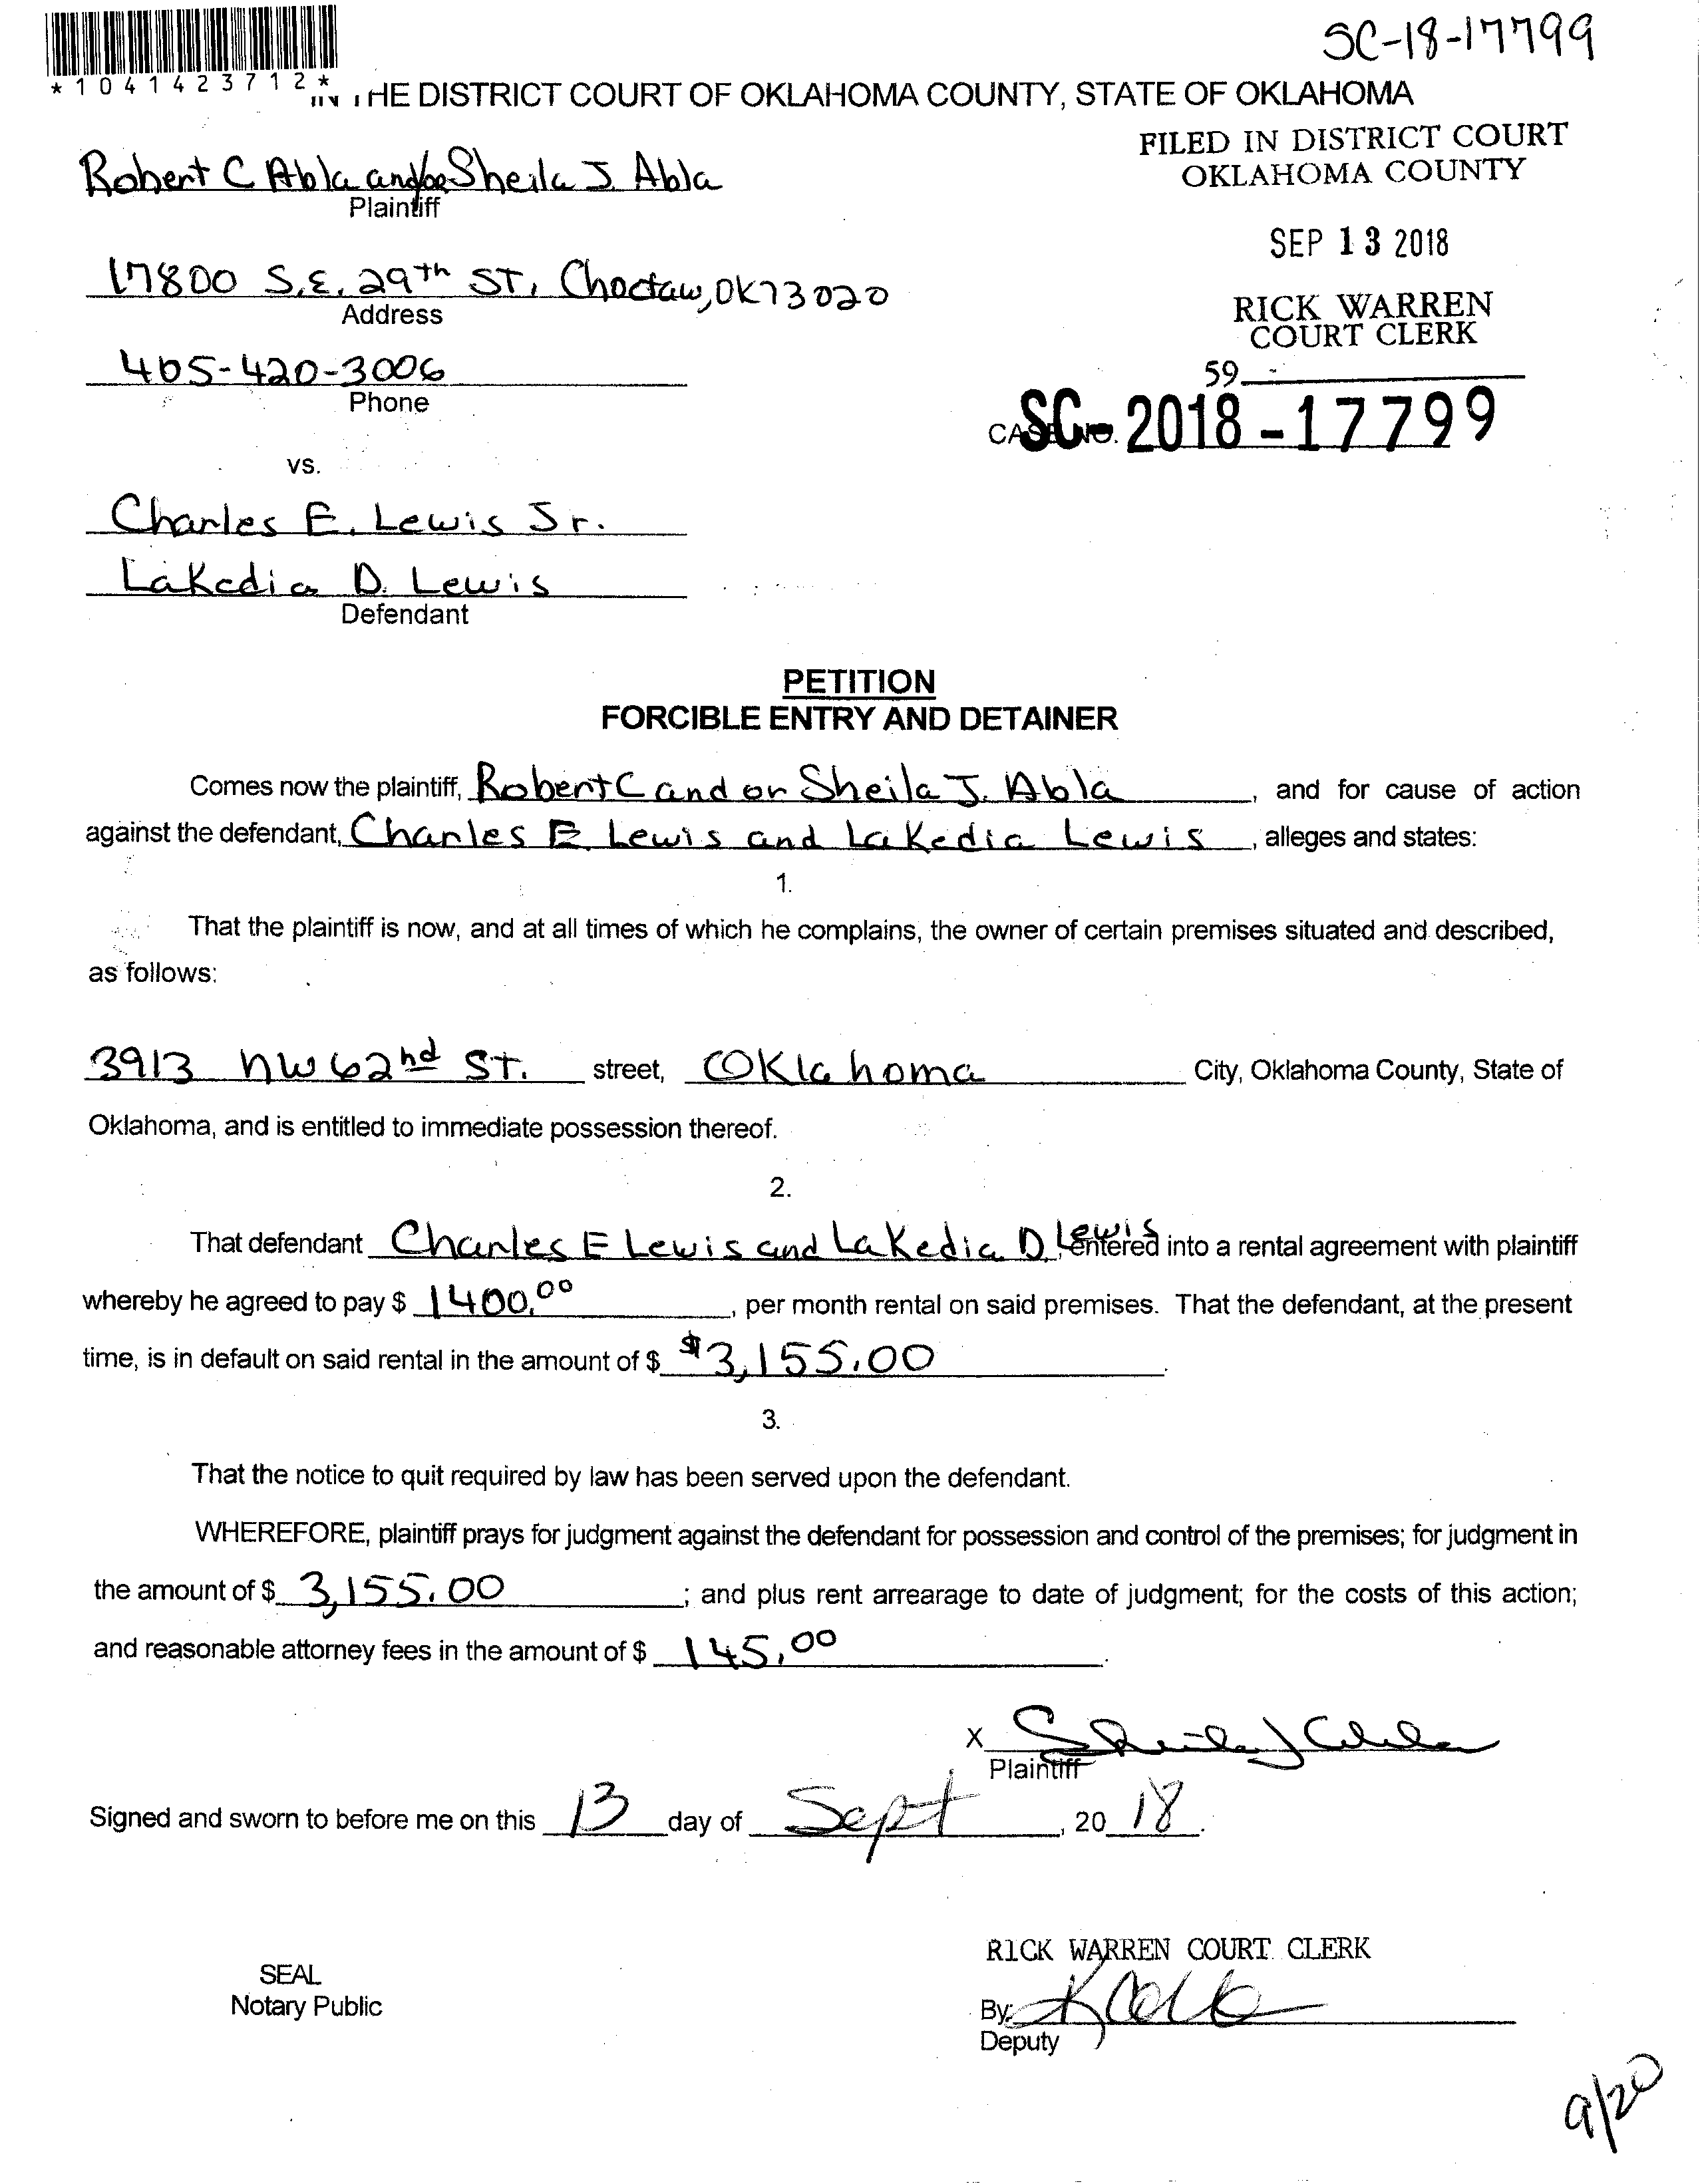 SC-18-17799
*1041423712*
IN THE DISTRICT COURT OF OKLAHOMA COUNTY, STATE OF OKLAHOMA
FILED IN DISTRICT COURT
OKLAHOMA COUNTY
Robert C Abla and/or Sheila J Abla
Plaintiff
SEP 13 2018
17800 S.E. 29th ST, Choctaw, OK 73020
Address
RICK WARREN
COURT CLERK
405-420-3006
Phone
59
CASE NO. SC-2018-17799
vs.
Charles E. Lewis Sr.
LaKedia D. Lewis
Defendant
PETITION
FORCIBLE ENTRY AND DETAINER
Comes now the plaintiff, Robert C and or Sheila J. Abla, and for cause of action
against the defendant, Charles E. Lewis and LaKedia Lewis, alleges and states:
1.
That the plaintiff is now, and at all times of which he complains, the owner of certain premises situated and described,
as follows:
3913 NW 62nd ST. street, Oklahoma City, Oklahoma County, State of
Oklahoma, and is entitled to immediate possession thereof.
2.
That defendant Charles E Lewis and LaKedia D. Lewis, entered into a rental agreement with plaintiff
whereby he agreed to pay $ 1400.00, per month rental on said premises. That the defendant, at the present
time, is in default on said rental in the amount of $ $3,155.00.
3.
That the notice to quit required by law has been served upon the defendant.
WHEREFORE, plaintiff prays for judgment against the defendant for possession and control of the premises; for judgment in
the amount of $ 3,155.00; and plus rent arrearage to date of judgment; for the costs of this action;
and reasonable attorney fees in the amount of $ 145.00.
X Sheila J Abla
Plaintiff
Signed and sworn to before me on this 13 day of Sept, 2018.
RICK WARREN COURT CLERK
SEAL
Notary Public
By:
Deputy
9/20